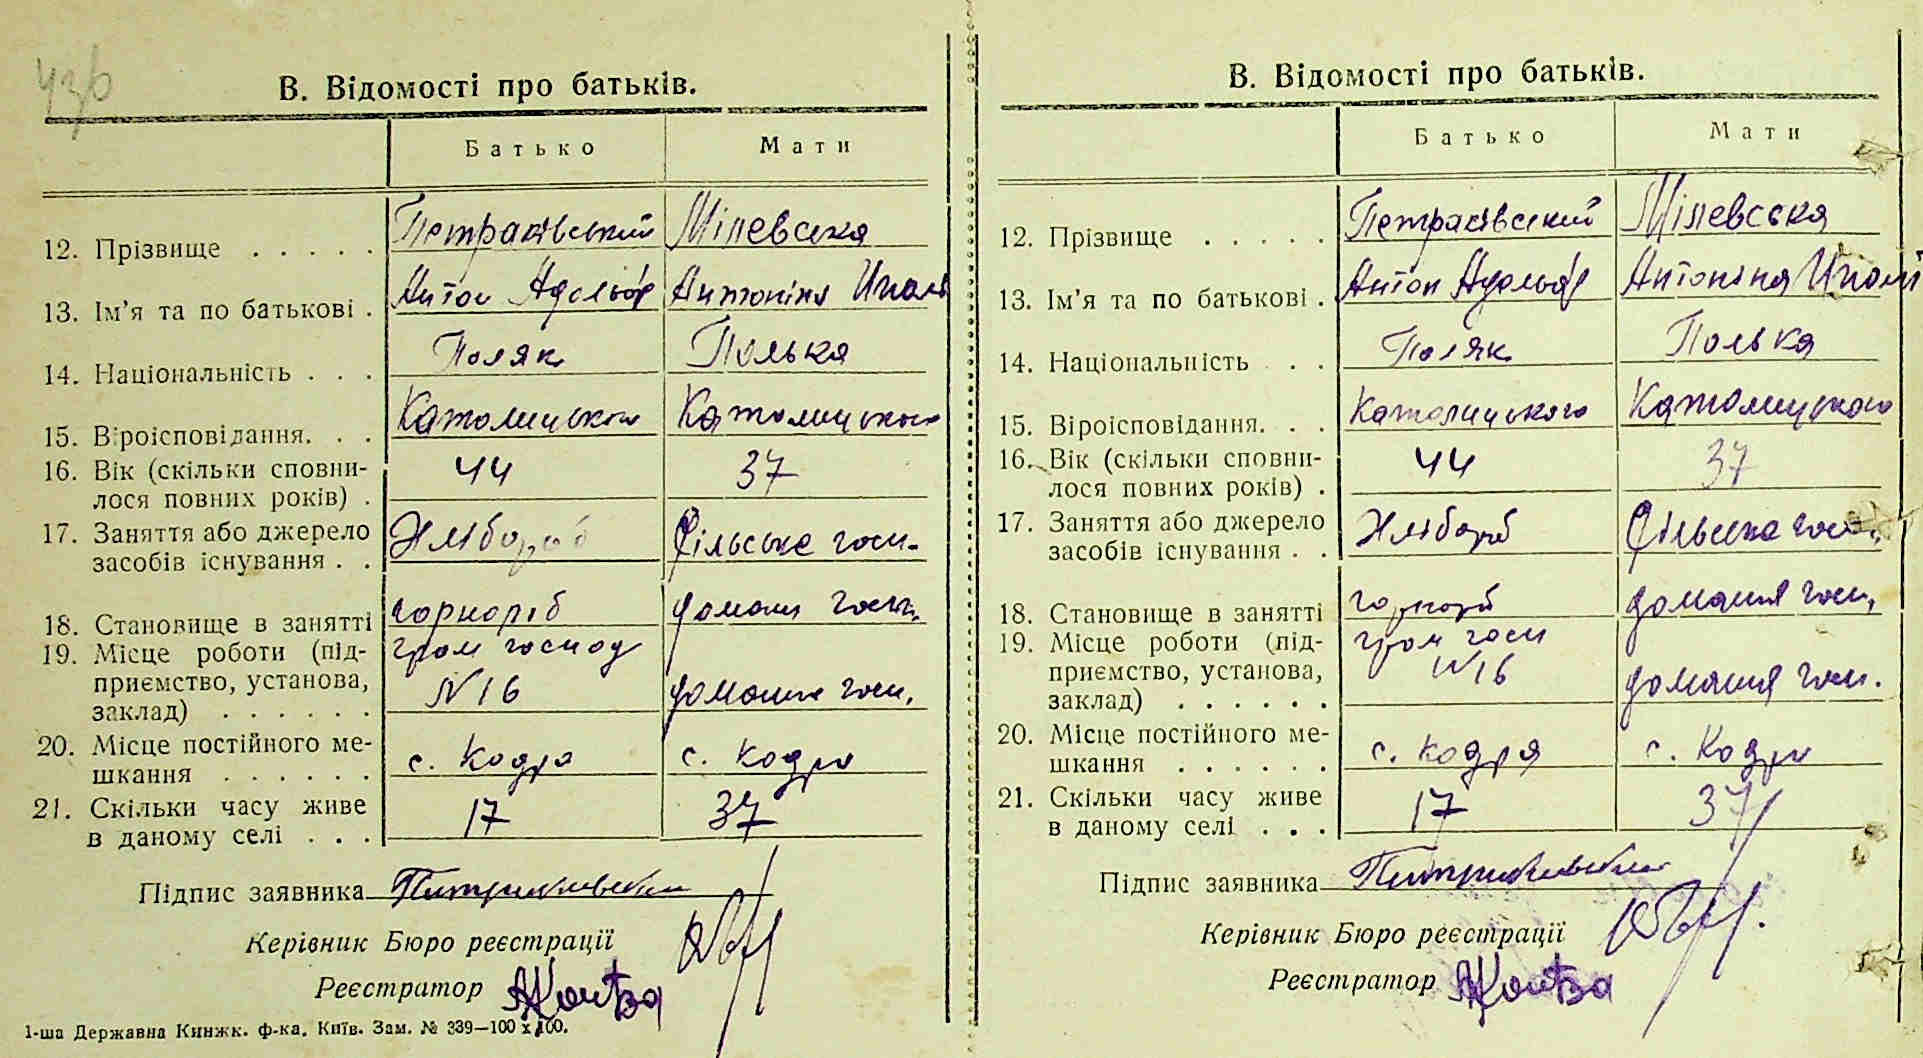 В. Відомості про батьків.
Батько Мати
12. Прізвище . . . . . Петраківський Мілевська
13. Ім'я та по батькові . Антон Адольф Антоніна
14. Національність . . . Поляк Полька
15. Віроісповідання. . . Католицького Католицького
16. Вік (скільки сповни-
лося повних років) . 44 37
17. Заняття або джерело
засобів існування . . Хлібороб Сільське госп.
18. Становище в занятті домашнє госп.
19. Місце роботи (під- гром господ
приємство, установа, N 16
заклад) . . . . . . домашнє госп.
20. Місце постійного ме-
шкання . . . . . . с. Кодра с. Кодра
21. Скільки часу живе
в даному селі . . . 17 37
Підпис заявника
Керівник Бюро реєстрації
Реєстратор
1-ша Державна Книжк. ф-ка. Київ. Зам. № 339—100 х 100.
В. Відомості про батьків.
Батько Мати
12. Прізвище . . . . . Петраківський Мілевська
13. Ім'я та по батькові . Антон Адольф Антоніна
14. Національність . . Поляк Полька
15. Віроісповідання. . . Католицького Католицького
16. Вік (скільки сповни-
лося повних років) . 44 37
17. Заняття або джерело
засобів існування . . Хлібороб Сільське госп.
18. Становище в занятті домашнє госп.
19. Місце роботи (під- гром госп
приємство, установа, N 16
заклад) . . . . . . домашнє госп.
20. Місце постійного ме-
шкання . . . . . . с. Кодра с. Кодра
21. Скільки часу живе
в даному селі . . . 17 37
Підпис заявника
Керівник Бюро реєстрації
Реєстратор